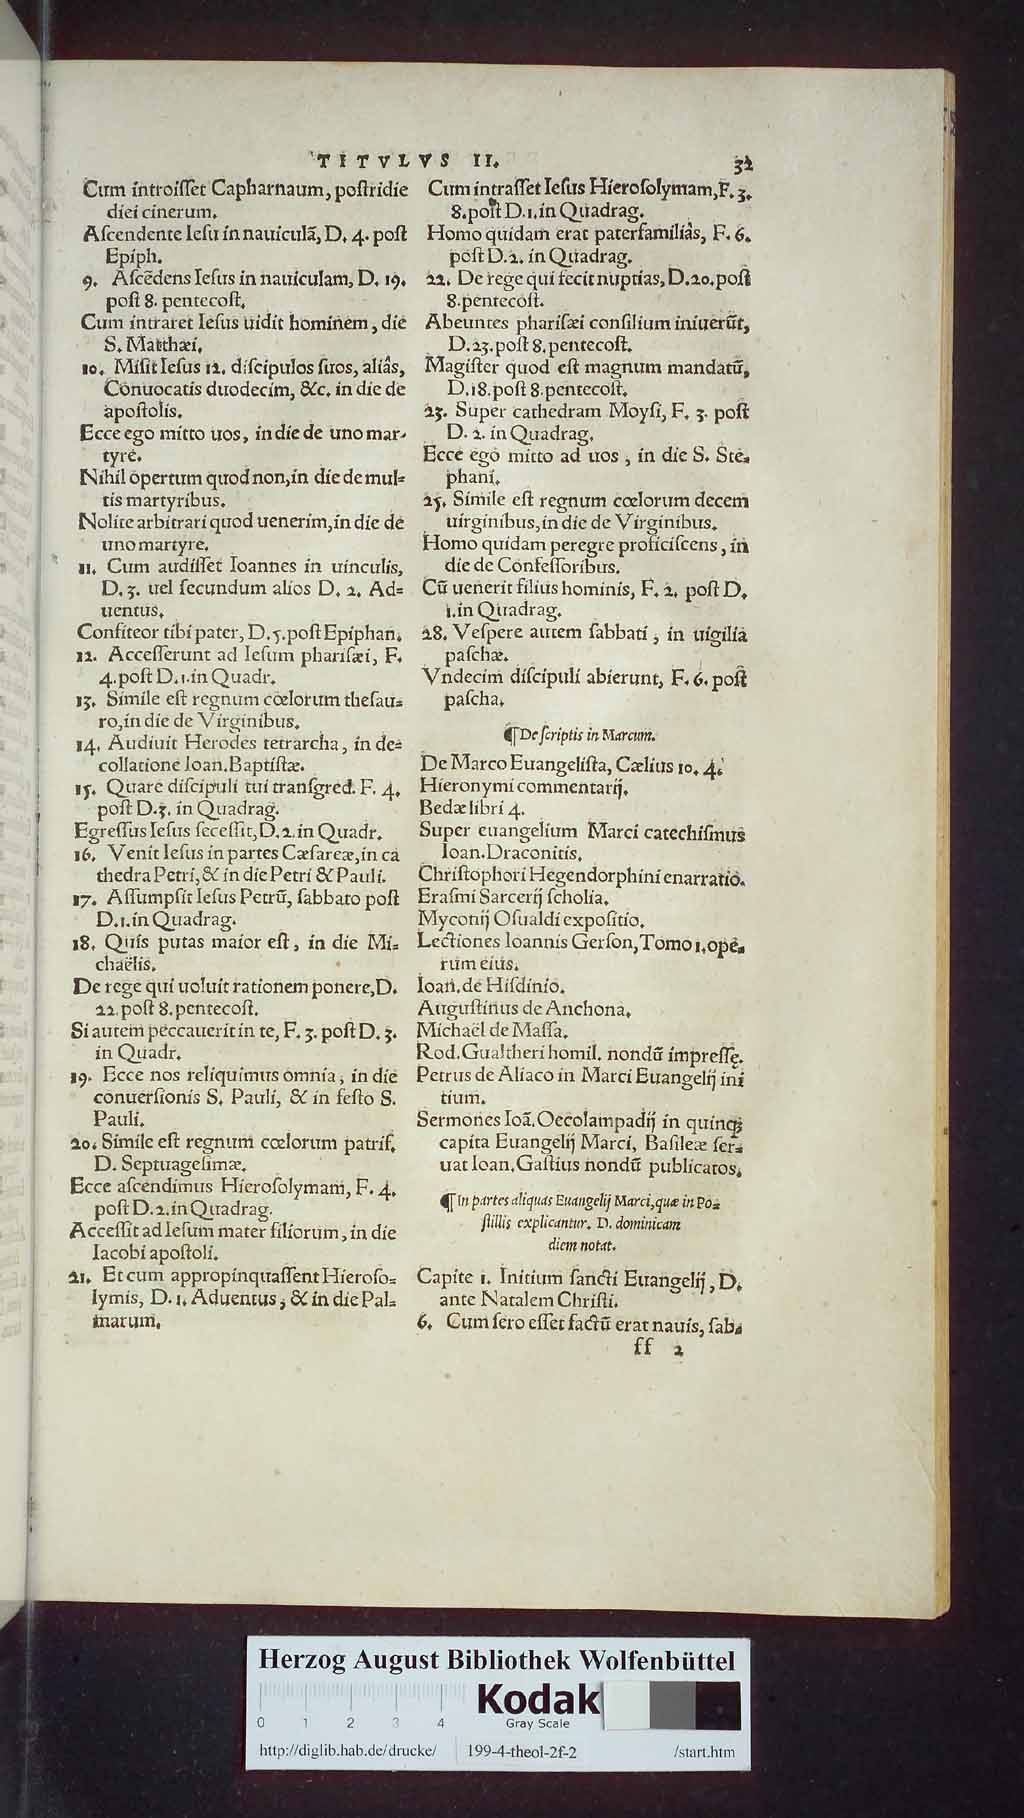 TITVLVS II. 32
Cum introiſſet Capharnaum, poſtridie
diei cinerum.
Aſcendente Ieſu in nauiculã, D. 4. poſt
Epiph.
9. Aſcẽdens Ieſus in nauiculam, D. 19.
poſt 8. pentecoſt.
Cum intraret Ieſus uidit hominem, die
S. Matthæi.
10. Miſit Ieſus 12. diſcipulos ſuos, aliâs,
Conuocatis duodecim, &c. in die de
apoſtolis.
Ecce ego mitto uos, in die de uno mar-
tyre.
Nihil opertum quod non, in die de mul-
tis martyribus.
Nolite arbitrari quod uenerim, in die de
uno martyre.
11. Cum audiſſet Ioannes in uinculis,
D. 3. uel ſecundum alios D. 2. Ad-
uentus.
Confiteor tibi pater, D. 5. poſt Epiphan.
12. Acceſſerunt ad Ieſum phariſæi, F.
4. poſt D. 1. in Quadr.
13. Simile eſt regnum cœlorum theſau-
ro, in die de Virginibus.
14. Audiuit Herodes tetrarcha, in de-
collatione Ioan. Baptiſtæ.
15. Quare diſcipuli tui tranſgred. F. 4.
poſt D. 3. in Quadrag.
Egreſſus Ieſus ſeceſſit, D. 2. in Quadr.
16. Venit Ieſus in partes Cæſareæ, in ca
thedra Petri, & in die Petri & Pauli.
17. Aſſumpſit Ieſus Petrũ, ſabbato poſt
D. 1. in Quadrag.
18. Quis putas maior eſt, in die Mi-
chaëlis.
De rege qui uoluit rationem ponere, D.
22. poſt 8. pentecoſt.
Si autem peccauerit in te, F. 3. poſt D. 3.
in Quadr.
19. Ecce nos reliquimus omnia, in die
conuerſionis S. Pauli, & in feſto S.
Pauli.
20. Simile eſt regnum cœlorum patrif.
D. Septuageſimæ.
Ecce aſcendimus Hieroſolymam, F. 4.
poſt D. 2. in Quadrag.
Acceſſit ad Ieſum mater filiorum, in die
Iacobi apoſtoli.
21. Et cum appropinquaſſent Hieroſo-
lymis, D. 1. Aduentus, & in die Pal-
marum.
Cum intraſſet Ieſus Hieroſolymam, F. 3.
8. poſt D. 1. in Quadrag.
Homo quidam erat paterfamiliâs, F. 6.
poſt D. 2. in Quadrag.
22. De rege qui fecit nuptias, D. 20. poſt
8. pentecoſt.
Abeuntes phariſæi conſilium iniuerũt,
D. 23. poſt 8. pentecoſt.
Magiſter quod eſt magnum mandatũ,
D. 18. poſt 8. pentecoſt.
23. Super cathedram Moyſi, F. 3. poſt
D. 2. in Quadrag.
Ecce ego mitto ad uos, in die S. Ste-
phani.
25. Simile eſt regnum cœlorum decem
uirginibus, in die de Virginibus.
Homo quidam peregre proficiſcens, in
die de Confeſſoribus.
Cũ uenerit filius hominis, F. 2. poſt D.
1. in Quadrag.
28. Veſpere autem ſabbati, in uigilia
paſchæ.
Vndecim diſcipuli abierunt, F. 6. poſt
paſcha.
¶ De ſcriptis in Marcum.
De Marco Euangeliſta, Cælius 10. 4.
Hieronymi commentarij.
Bedæ libri 4.
Super euangelium Marci catechiſmus
Ioan. Draconitis.
Chriſtophori Hegendorphini enarratio.
Eraſmi Sarcerij ſcholia.
Myconij Oſualdi expoſitio.
Lectiones Ioannis Gerſon, Tomo 1. ope-
rum eius.
Ioan. de Hiſdinio.
Auguſtinus de Anchona.
Michaël de Maſſa.
Rod. Gualtheri homil. nondũ impreſſę.
Petrus de Aliaco in Marci Euangelij ini
tium.
Sermones Ioã. Oecolampadij in quinqꝫ
capita Euangelij Marci, Baſileæ ſer-
uat Ioan. Gaſtius nondũ publicatos.
¶ In partes aliquas Euangelij Marci, quæ in Po-
ſtillis explicantur. D. dominicam
diem notat.
Capite 1. Initium ſancti Euangelij, D.
ante Natalem Chriſti.
6. Cum ſero eſſet factũ erat nauis, ſab-
ff 2
Herzog August Bibliothek Wolfenbüttel
0 1 2 3 4
Kodak
Gray Scale
http://diglib.hab.de/drucke/ 199-4-theol-2f-2 /start.htm